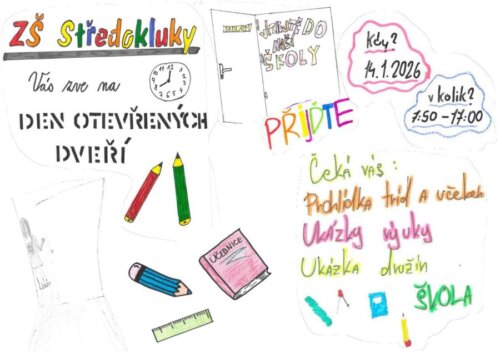 ZŠ Středokluky
Vás zve na
DEN OTEVŘENÝCH
DVEŘÍ
VSTUPTE DO
NAŠÍ
ŠKOLY
PŘIJĎTE
Kdy?
14.1.2026
v kolik?
7:50-17:00
Čeká vás:
Prohlídka tříd a učeben
Ukázky výuky
Ukázka družin
ŠKOLA
UČEBNICE